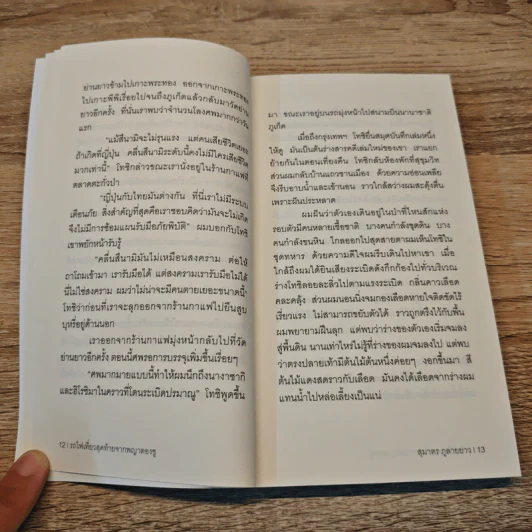 ย่านยาวข้ามไปเกาะพระทอง ออกจากเกาะพระทอง
ไปเกาะพีพีเรื่อยไปจนถึงภูเก็ตแล้วกลับมาวัดย่าน
ยาวอีกครั้ง ที่นั่นเราพบว่าจำนวนโลงศพมากกว่าวัน
แรก
"แม้สึนามิจะไม่รุนแรง แต่คนเสียชีวิตเยอะ
ถ้าเกิดที่ญี่ปุ่น คลื่นสึนามิระดับนี้คงไม่มีใครเสียชีวิต
มากเท่านี้" โทชิกล่าวขณะเรานั่งอยู่ในร้านกาแฟที่
ตลาดตะกั่วป่า
"ญี่ปุ่นกับไทยมันต่างกัน ที่นี่เราไม่มีระบบ
เตือนภัย สิ่งสำคัญที่สุดคือเราชอบคิดว่ามันจะไม่เกิด
จึงไม่มีการซ้อมแผนรับมือภัยพิบัติ" ผมบอกกับโทชิ
เขาพยักหน้ารับรู้
"คลื่นสึนามิมันไม่เหมือนสงคราม ต่อให้
ถาโถมเข้ามา เรารับมือได้ แต่สงครามเรารับมือไม่ได้
นี่ไม่ใช่สงคราม ผมว่าไม่น่าจะมีคนตายเยอะขนาดนี้"
โทชิว่าก่อนที่เราจะลุกออกจากร้านกาแฟไปยืนสูบ
บุหรี่อยู่ด้านนอก
เราออกจากร้านกาแฟมุ่งหน้ากลับไปที่วัด
ย่านยาวอีกครั้ง ตอนนี้ศพรอการบรรจุเพิ่มขึ้นเรื่อยๆ
"ศพมากมายแบบนี้ทำให้ผมนึกถึงนางาซากิ
และฮิโรชิมาในคราวที่โดนระเบิดปรมาณู" โทชิพูดขึ้น
12 | รถไฟเที่ยวสุดท้ายจากพญาตองซู
มา ขณะเราอยู่บนรถมุ่งหน้าไปสนามบินนานาชาติ
ภูเก็ต
เมื่อถึงกรุงเทพฯ โทชิยื่นสมุดบันทึกเล่มหนึ่ง
ให้ดู มันเป็นต้นร่างสารคดีเล่มใหม่ของเขา เราแยก
ย้ายกันในตอนเที่ยงคืน โทชิกลับห้องพักที่สุขุมวิท
ส่วนผมกลับบ้านแถวชานเมือง ด้วยความอ่อนเพลีย
จึงรีบอาบน้ำและเข้านอน ราวใกล้สว่างผมสะดุ้งตื่น
เพราะฝันประหลาด
ผมฝันว่าตัวเองเดินอยู่ในป่าที่ไหนสักแห่ง
รอบตัวมีคนหลายเชื้อชาติ บางคนกำลังขุดดิน บาง
คนกำลังขนหิน ไกลออกไปสุดสายตาผมเห็นโทชิใน
ชุดทหาร ด้วยความดีใจผมรีบเดินไปหาเขา เมื่อ
ใกล้ถึงผมได้ยินเสียงระเบิดดังกึกก้องไปทั่วบริเวณ
ร่างโทชิลอยละลิ่วไปตามแรงระเบิด กลิ่นคาวเลือด
คละคลุ้ง ส่วนผมนอนนิ่งจมกองเลือดหายใจติดขัดไร้
เรี่ยวแรง ไม่สามารถขยับตัวได้ ราวถูกตรึงไว้กับพื้น
ผมพยายามฝืนลุก แต่พบว่าร่างของตัวเองเริ่มจมลง
สู่พื้นดิน นานเท่าไหร่ไม่รู้ที่ร่างของผมจมลงไป แต่พบ
ว่าตรงปลายเท้ามีต้นไม้ต้นหนึ่งค่อยๆ งอกขึ้นมา สี
ต้นไม้แดงสดราวกับเลือด มันคงได้เลือดจากร่างผม
แทนน้ำไปหล่อเลี้ยงเป็นแน่
สุมาตร ภูลายยาว | 13